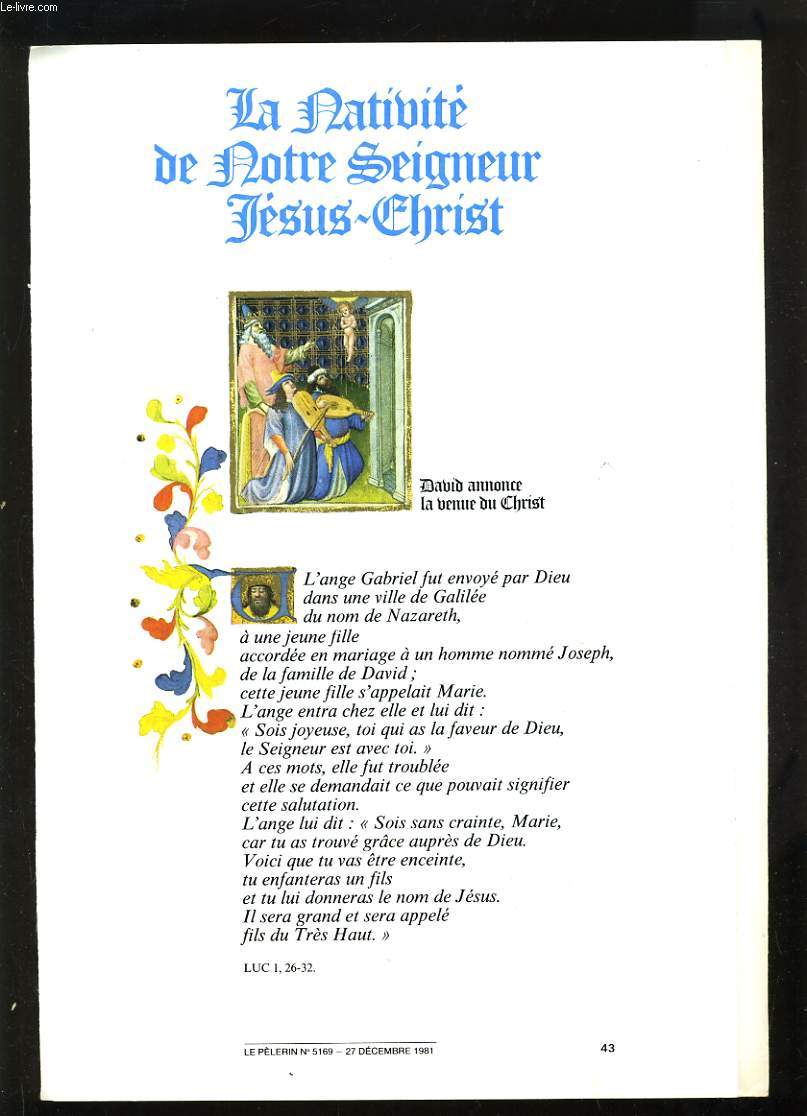 Le-livre.com
La Nativité
de Notre Seigneur
Jésus-Christ
David annonce
la venue du Christ
L'ange Gabriel fut envoyé par Dieu
dans une ville de Galilée
du nom de Nazareth,
à une jeune fille
accordée en mariage à un homme nommé Joseph,
de la famille de David ;
cette jeune fille s'appelait Marie.
L'ange entra chez elle et lui dit :
« Sois joyeuse, toi qui as la faveur de Dieu,
le Seigneur est avec toi. »
A ces mots, elle fut troublée
et elle se demandait ce que pouvait signifier
cette salutation.
L'ange lui dit : « Sois sans crainte, Marie,
car tu as trouvé grâce auprès de Dieu.
Voici que tu vas être enceinte,
tu enfanteras un fils
et tu lui donneras le nom de Jésus.
Il sera grand et sera appelé
fils du Très Haut. »
LUC 1, 26-32.
LE PÈLERIN N° 5169 – 27 DÉCEMBRE 1981
43